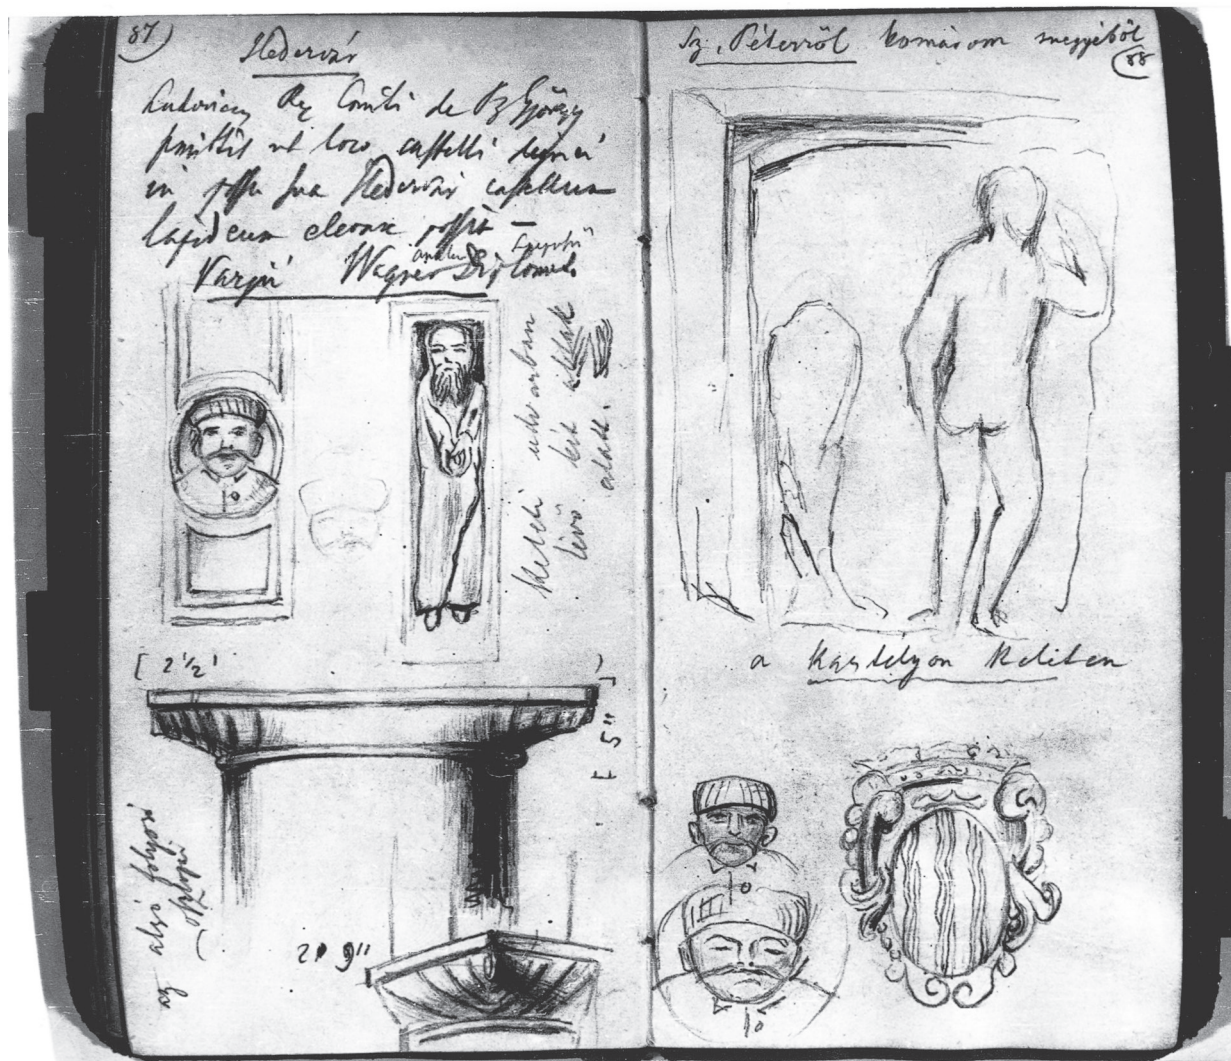 87)
Hedervár
Ludovicus Rex Comiti de Sz György
ut loco castelli lignei
in possu sua Hedervár castellum
lapideum elevare possit –
Varjú Wagner Diplomat.
keleti udvarban
lévő két ablak
alatt.
[ 2 1/2' ]
[ 5"
az alsó folyosó
oszlopai
2' 9"
Sz. Péterről komárom megyéből
88
a kastélyon keletben